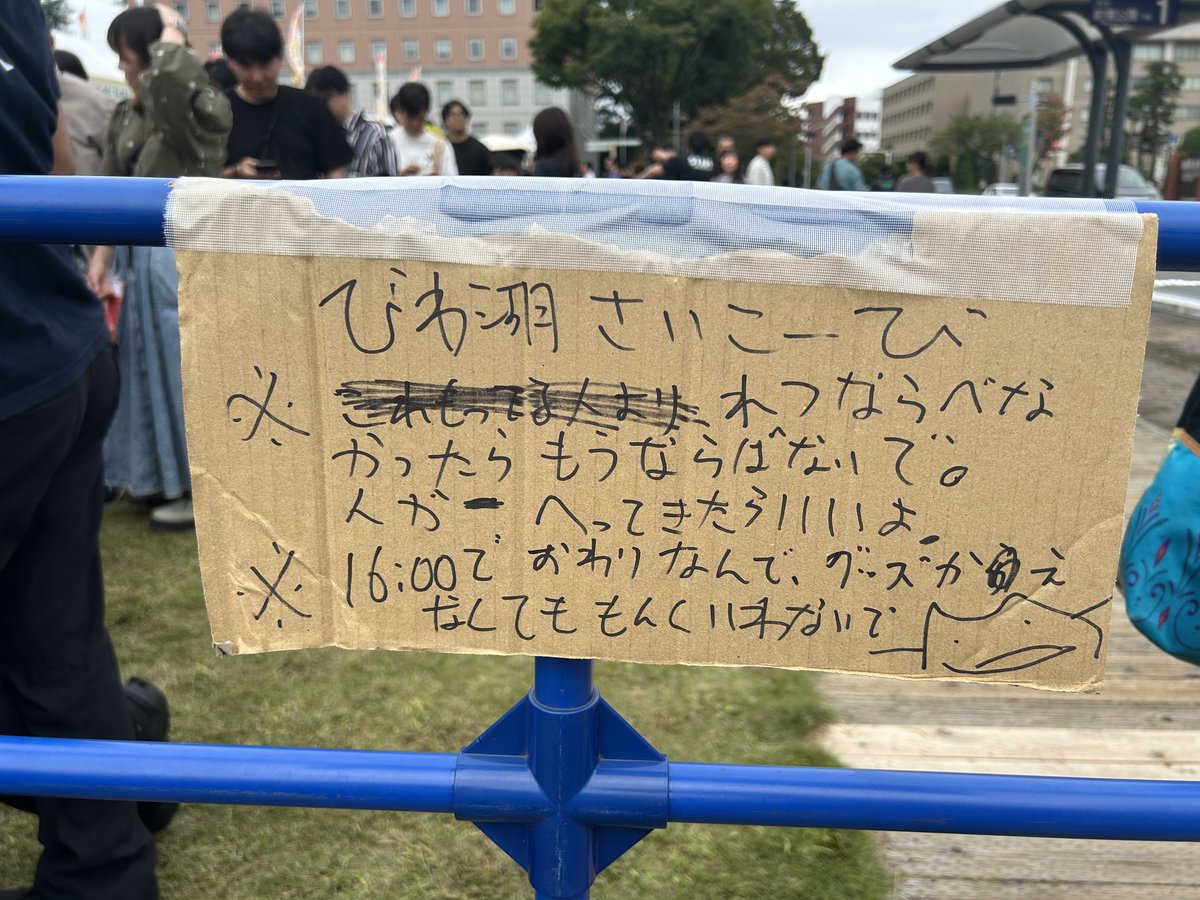 びわ湖 さいこーび
※ これもってる人より、れつならべな
かったら もうならばないで。
人がー へってきたらいいよ
※ 16:00で おわりなんで、グッズかえ
なくても もんくいわないで